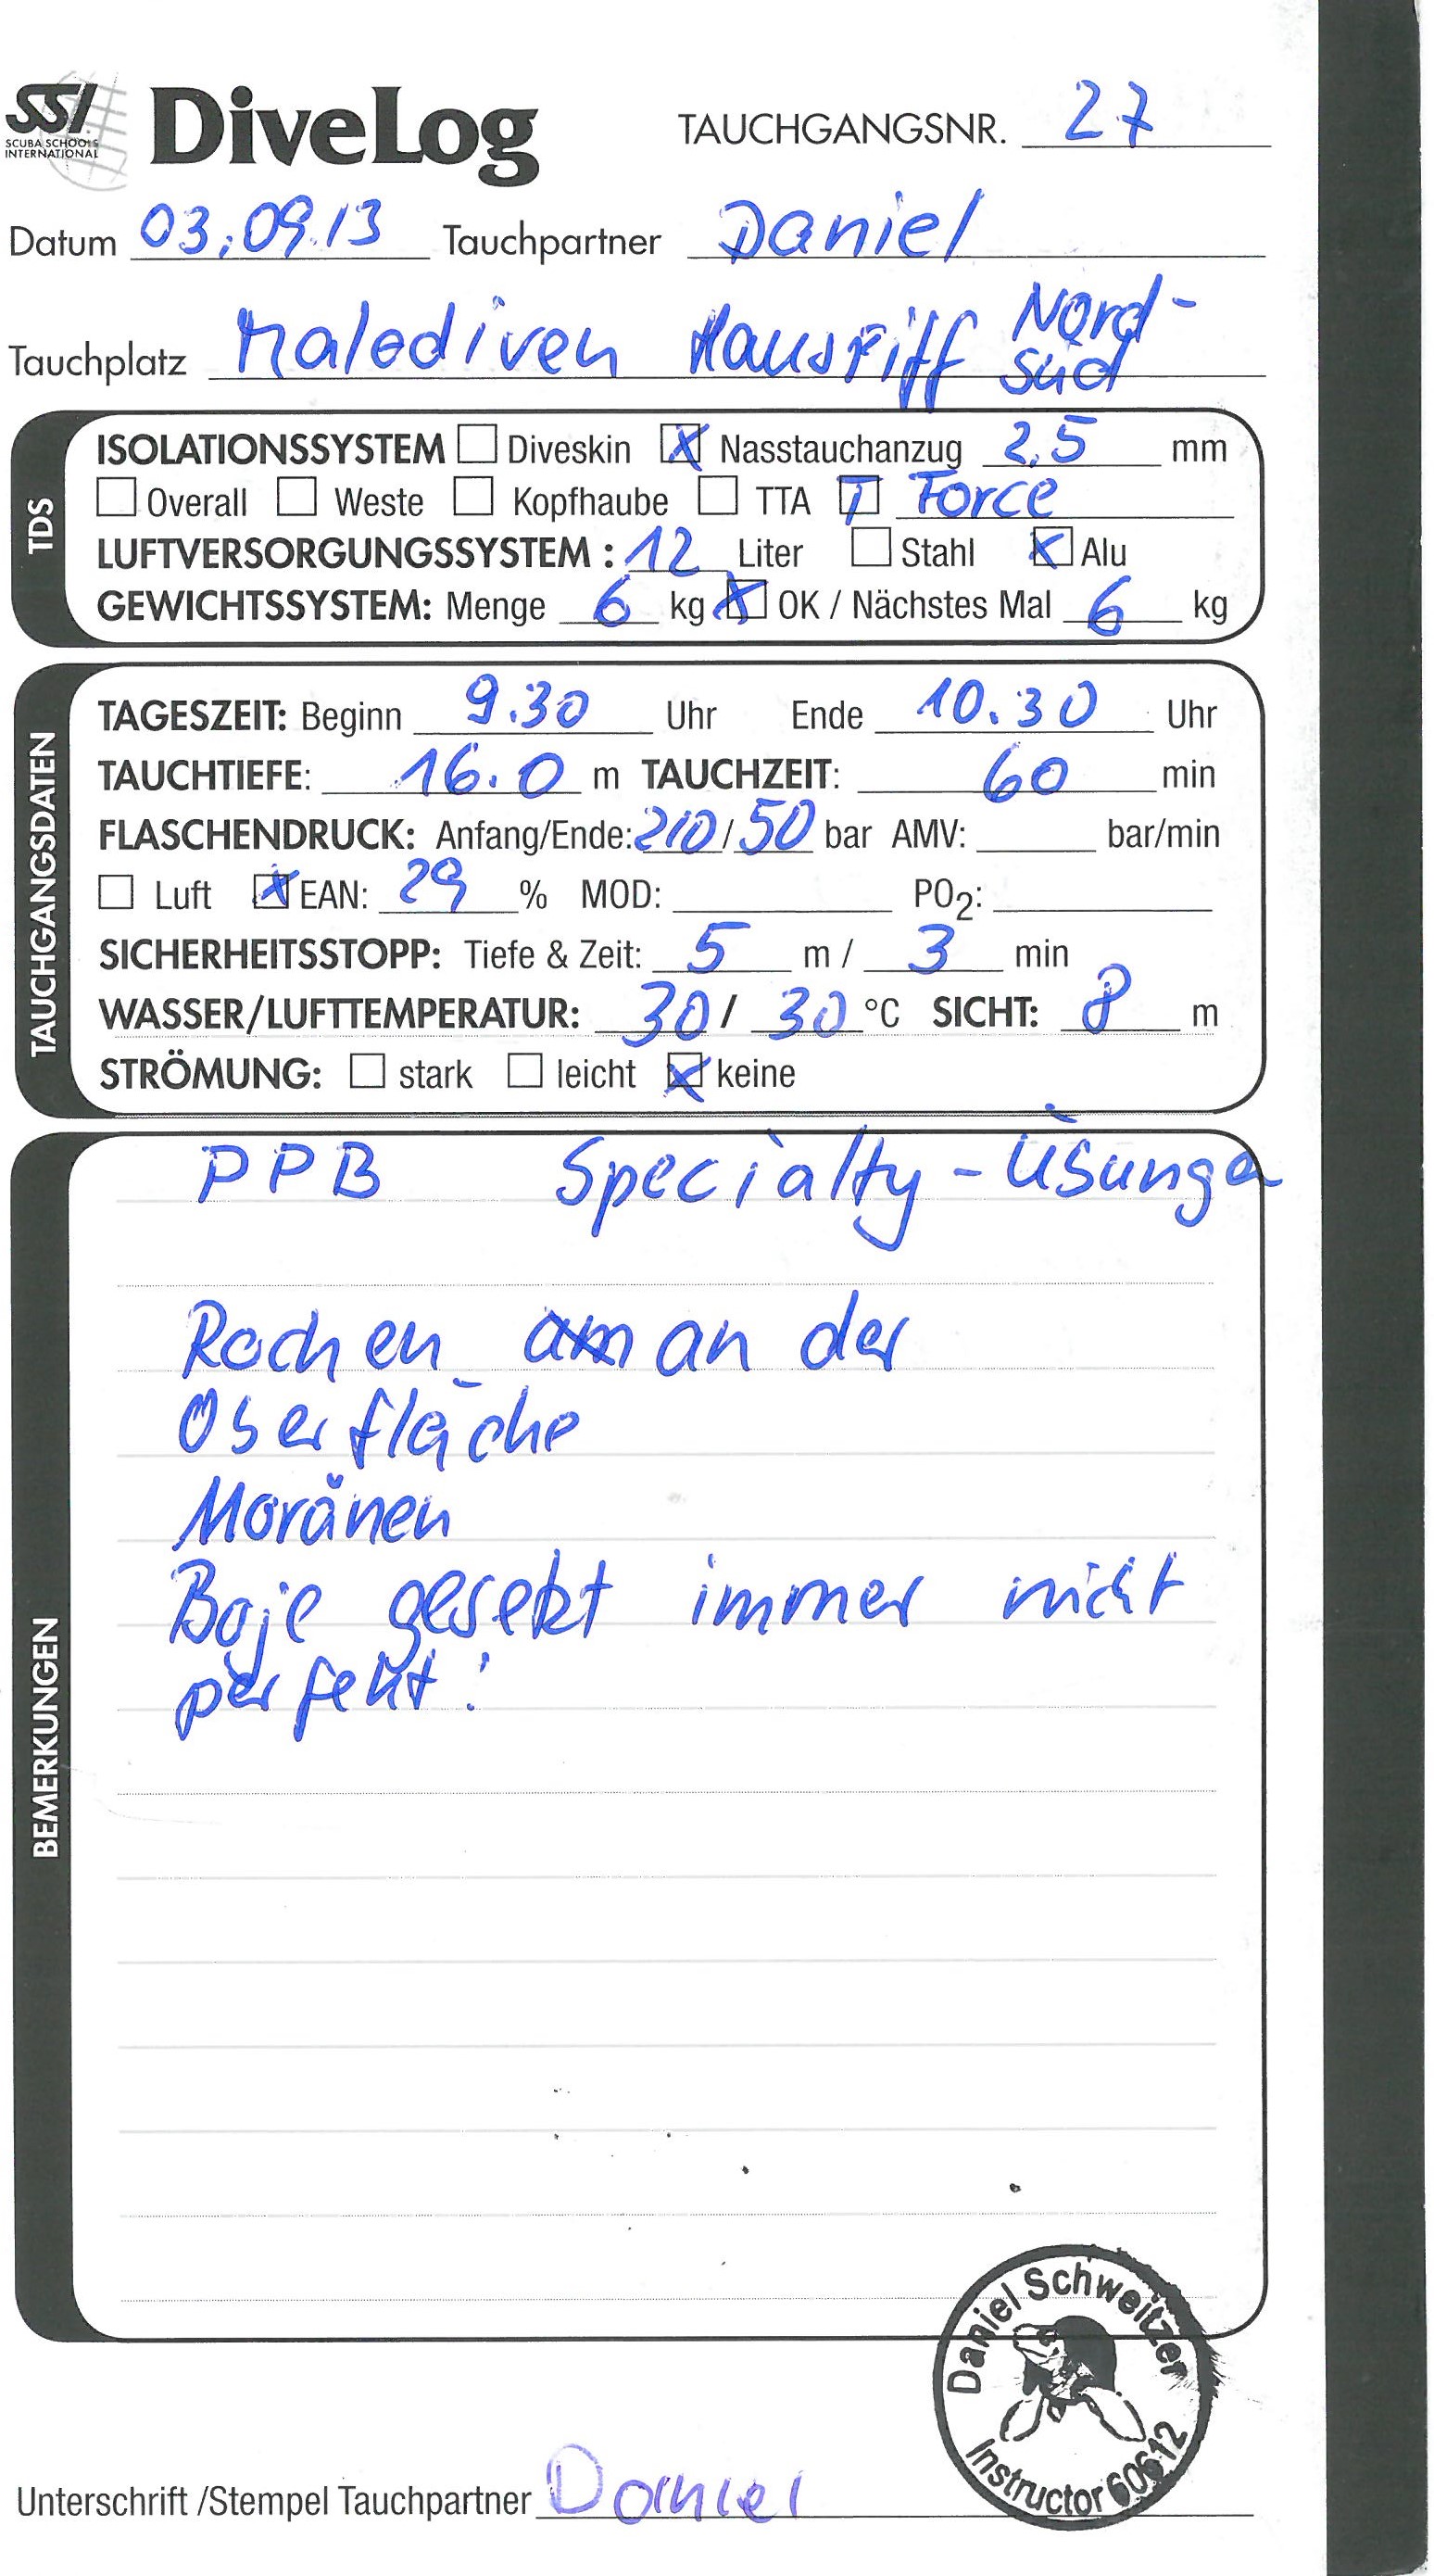 SSI
SCUBA SCHOOLS
INTERNATIONAL
DiveLog TAUCHGANGSNR. 27
Datum 03.09.13 Tauchpartner Daniel
Tauchplatz Malediven Hausriff Nord-
Süd
TDS
ISOLATIONSSYSTEM Diveskin X Nasstauchanzug 2,5 mm
Overall Weste Kopfhaube TTA T Force
LUFTVERSORGUNGSSYSTEM : 12 Liter Stahl X Alu
GEWICHTSSYSTEM: Menge 6 kg X OK / Nächstes Mal 6 kg
TAUCHGANGSDATEN
TAGESZEIT: Beginn 9.30 Uhr Ende 10.30 Uhr
TAUCHTIEFE: 16.0 m TAUCHZEIT: 60 min
FLASCHENDRUCK: Anfang/Ende: 210/50 bar AMV: bar/min
Luft X EAN: 29 % MOD: PO2:
SICHERHEITSSTOPP: Tiefe & Zeit: 5 m / 3 min
WASSER/LUFTTEMPERATUR: 30 / 30 °C SICHT: 8 m
STRÖMUNG: stark leicht X keine
BEMERKUNGEN
PPB Specialty-Übungen
Rochen an der
Oberfläche
Moränen
Boje gesetzt immer nicht
perfekt!
Daniel Schweitzer
Instructor 60612
Unterschrift /Stempel Tauchpartner Daniel